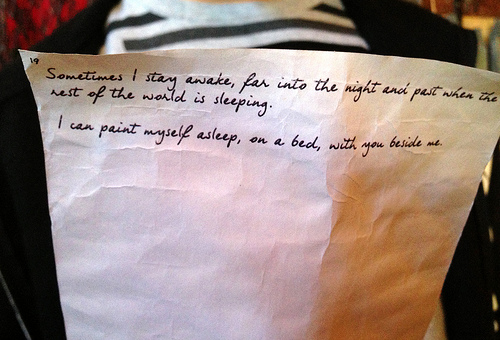 19
Sometimes I stay awake, far into the night and past when the
rest of the world is sleeping.
I can paint myself asleep, on a bed, with you beside me.